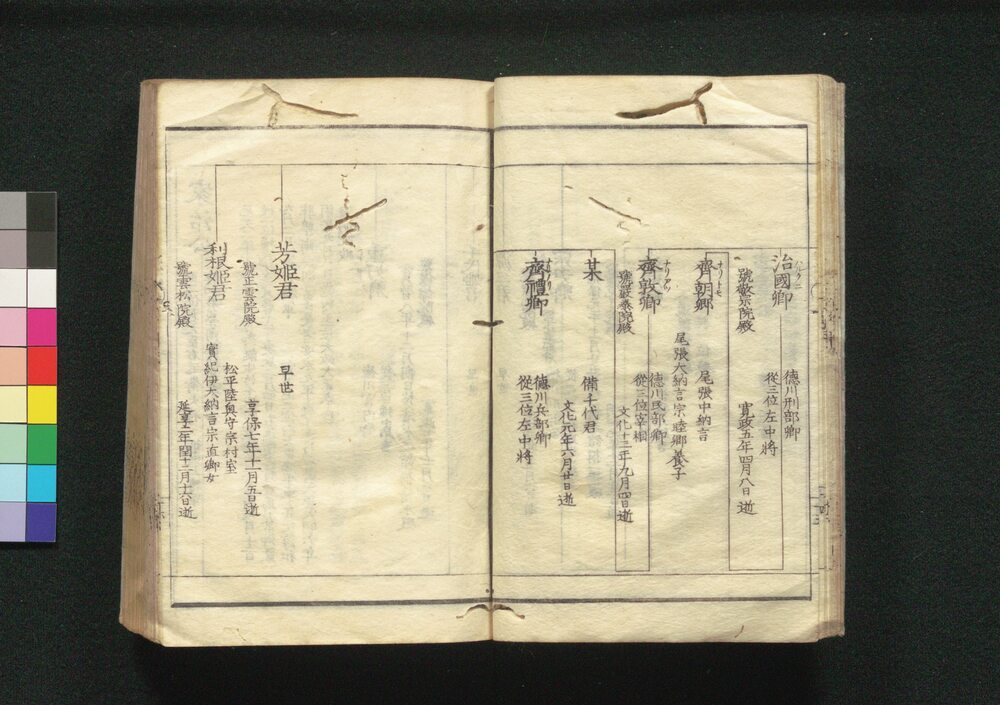 治國卿
德川刑部卿
從三位左中將
寛政五年四月八日逝
號敬宗院殿
齊朝卿
尾張中納言
尾張大納言宗睦卿養子
齊敦卿
德川民部卿
從三位宰相
文化十三年九月四日逝
某
備千代君
文化元年六月廿日逝
齊禮卿
德川兵部卿
從三位左中將
芳姬君
早世
享保七年十一月五日逝
號正雲院殿
利根姬君
松平陸奥守宗村室
實紀伊大納言宗直卿女
延享二年閏十二月十六日逝
號雲松院殿